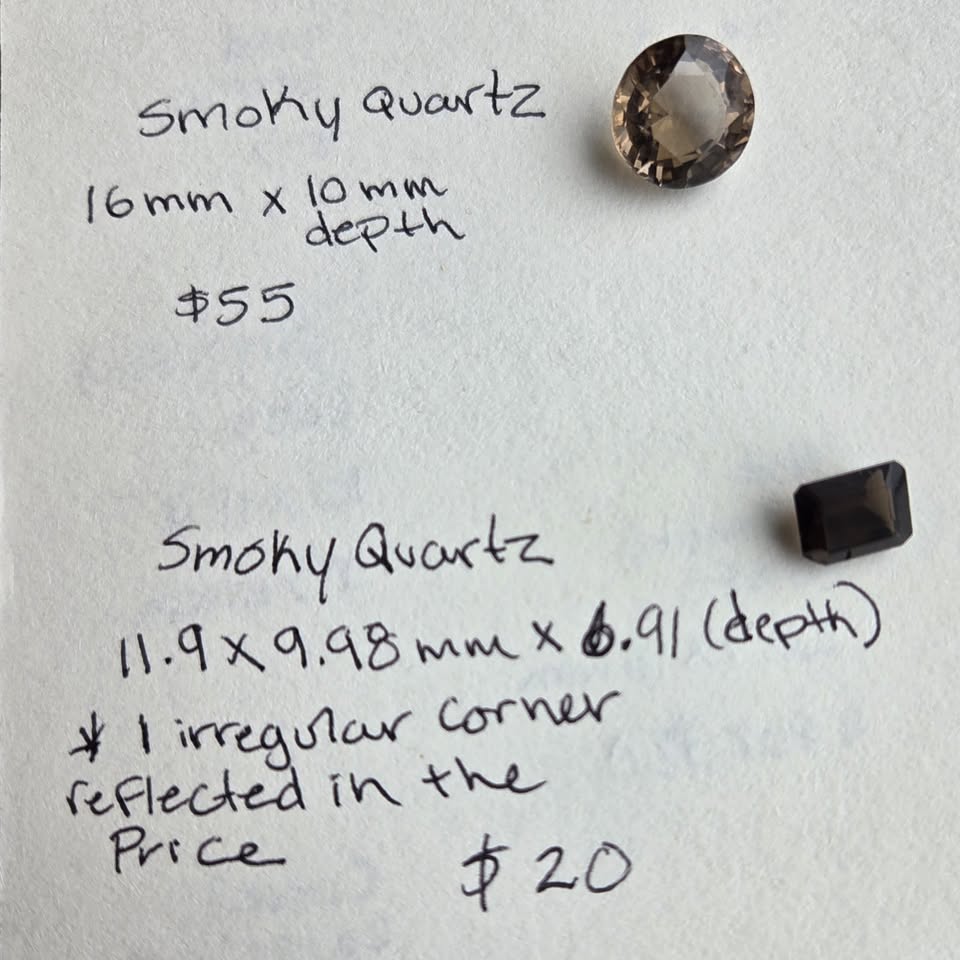 Smoky Quartz
16mm x 10mm
depth
$55
Smoky Quartz
11.9 x 9.98 mm x 6.91 (depth)
* 1 irregular corner
reflected in the
Price
$20